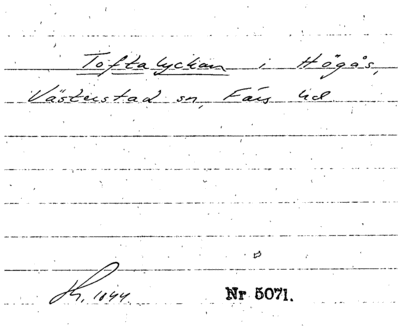 Toftalyckan i Högås,
Västerstad sn, Färs hd
1844.
Nr 5071.